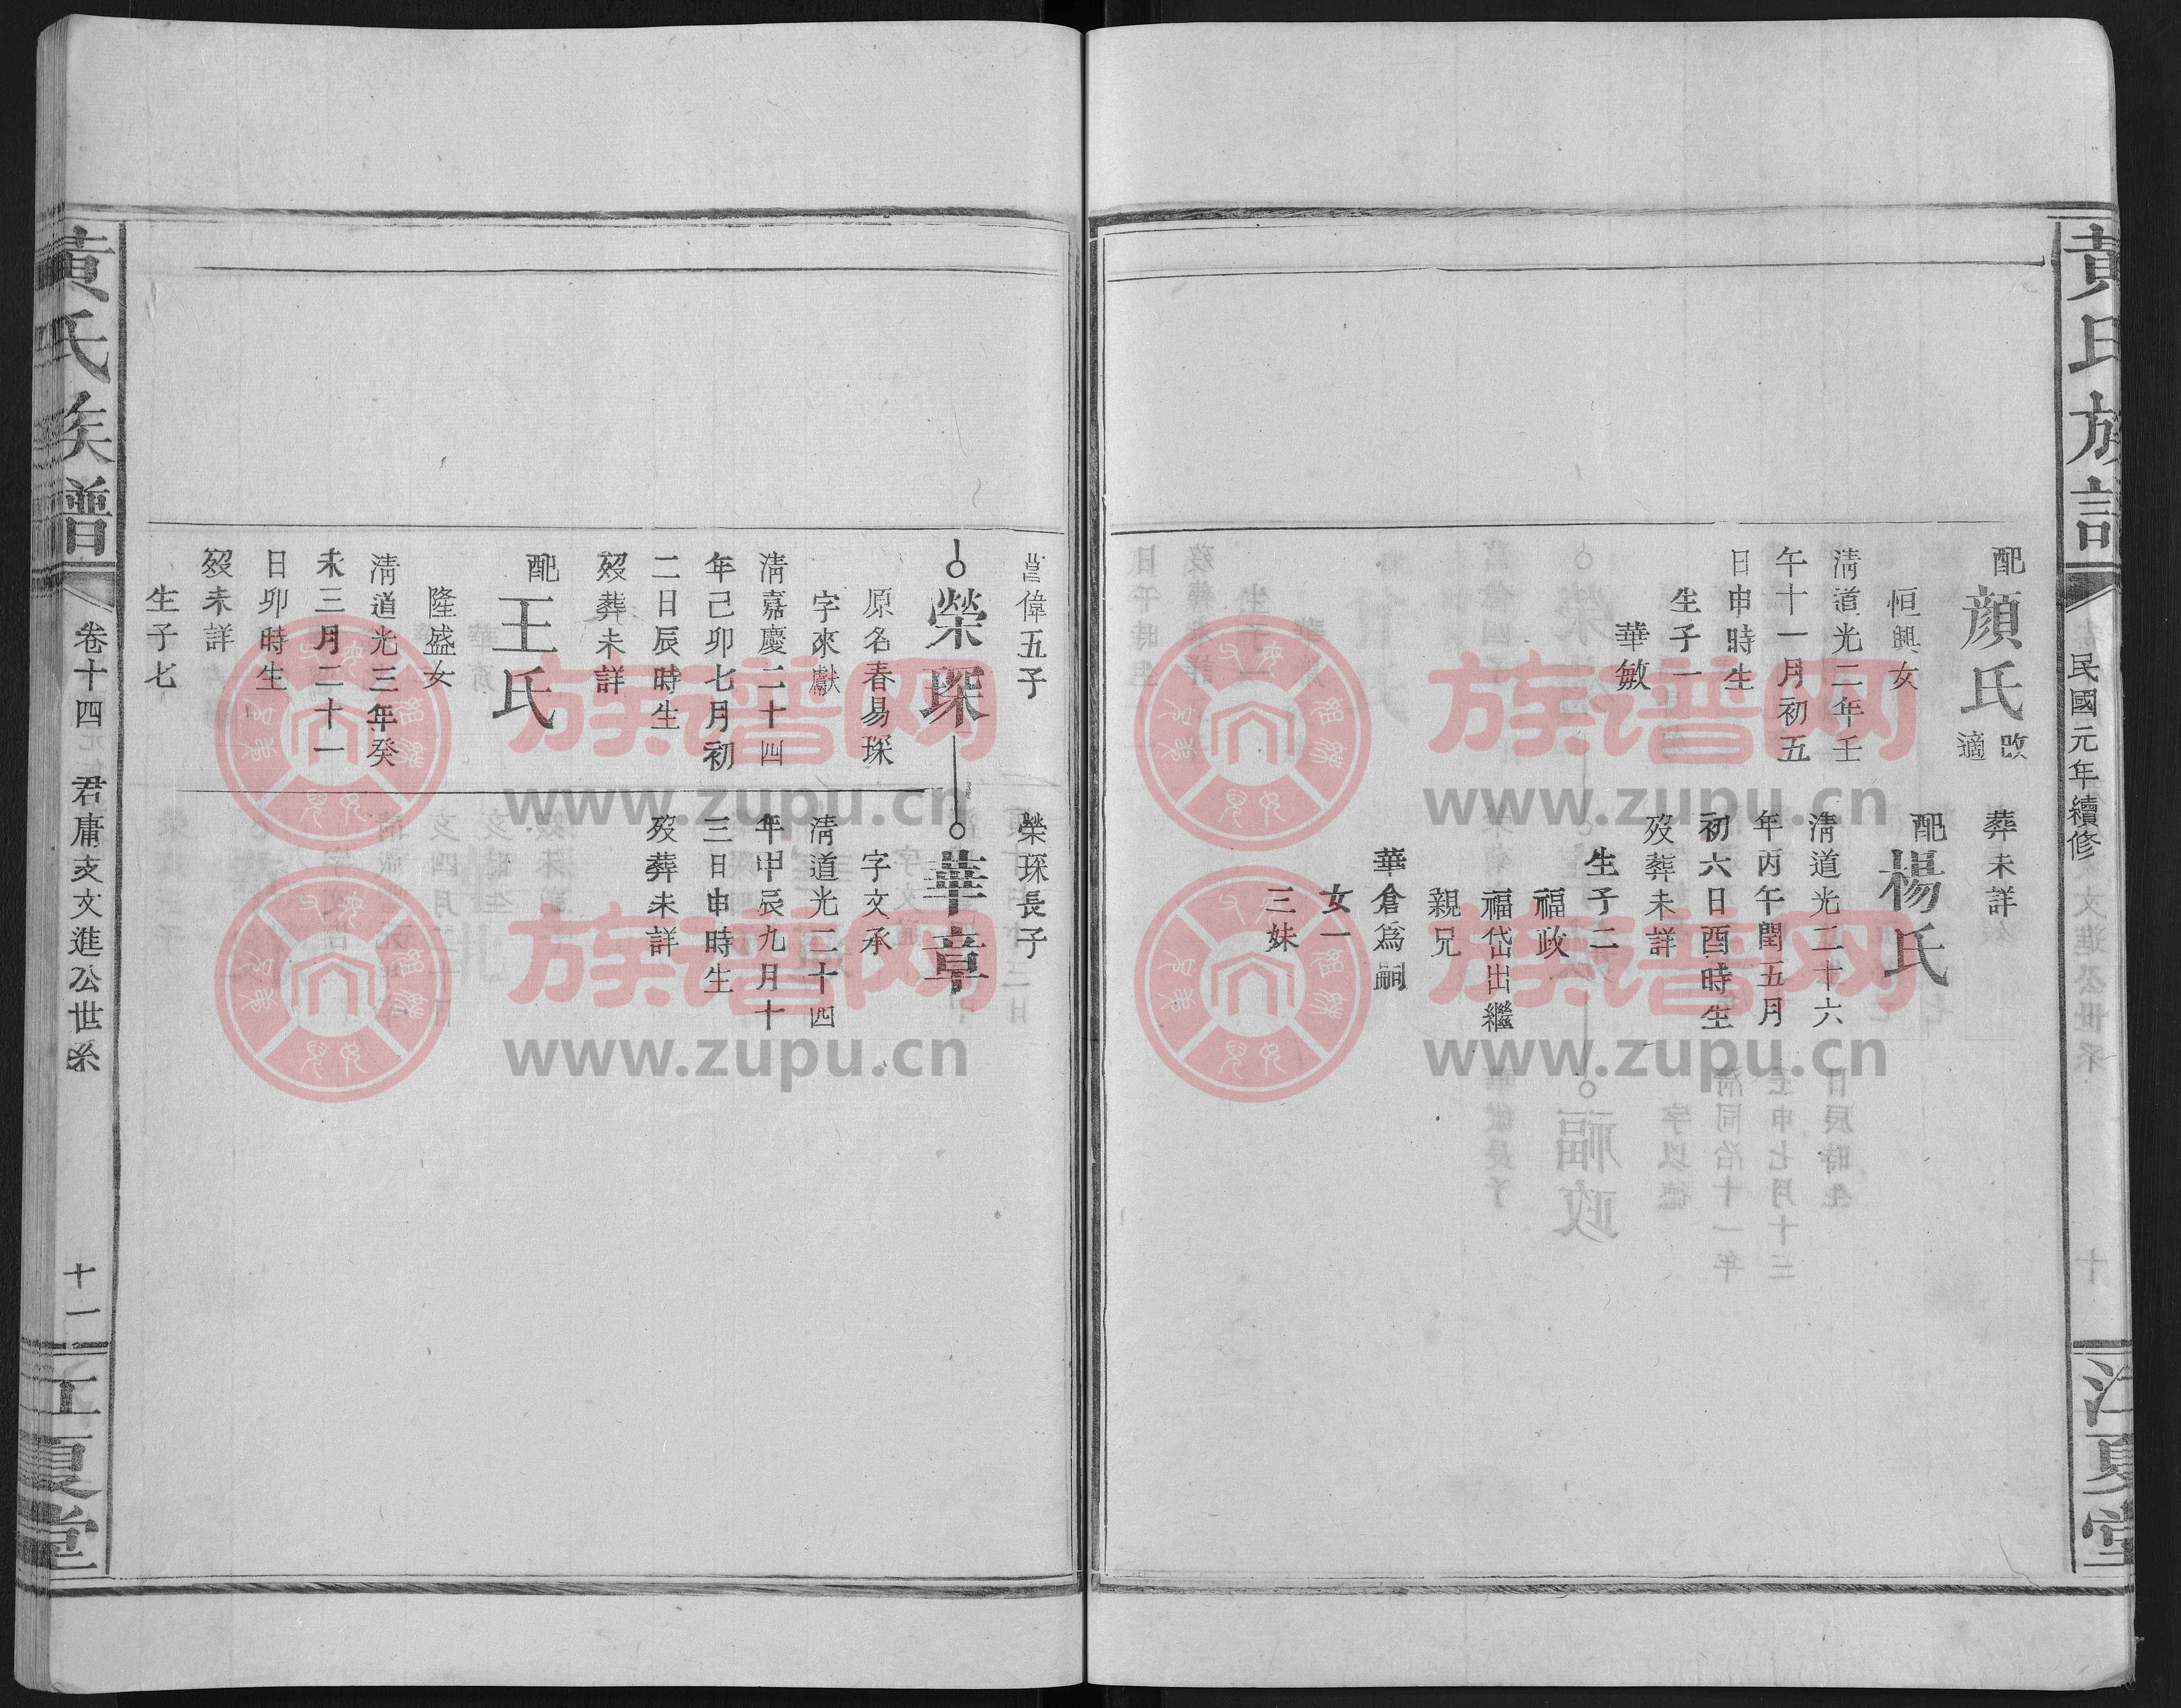 黃氏族譜
民國元年續修
江夏堂
配顏氏改適
恒興女
淸道光二年壬
午十一月初五
日申時生
生子一
華敏
葬未詳
配楊氏
淸道光二十六
年丙午閏五月
初六日酉時生
歿葬未詳
生子二
福政
福岱出繼
親兄
華倉爲嗣
女一
三妹
菖偉五子
榮琛
原名春易琛
字來獻
淸嘉慶二十四
年己卯七月初
二日辰時生
歿葬未詳
配王氏
隆盛女
淸道光三年癸
未三月二十一
日卯時生
歿未詳
生子七
榮琛長子
華章
字文承
淸道光二十四
年甲辰九月十
三日申時生
歿葬未詳
黃氏族譜
卷十四 君庸支文進公世系
十一
江夏堂
族谱网
www.zupu.cn
族谱网
www.zupu.cn
族谱网
www.zupu.cn
族谱网
www.zupu.cn